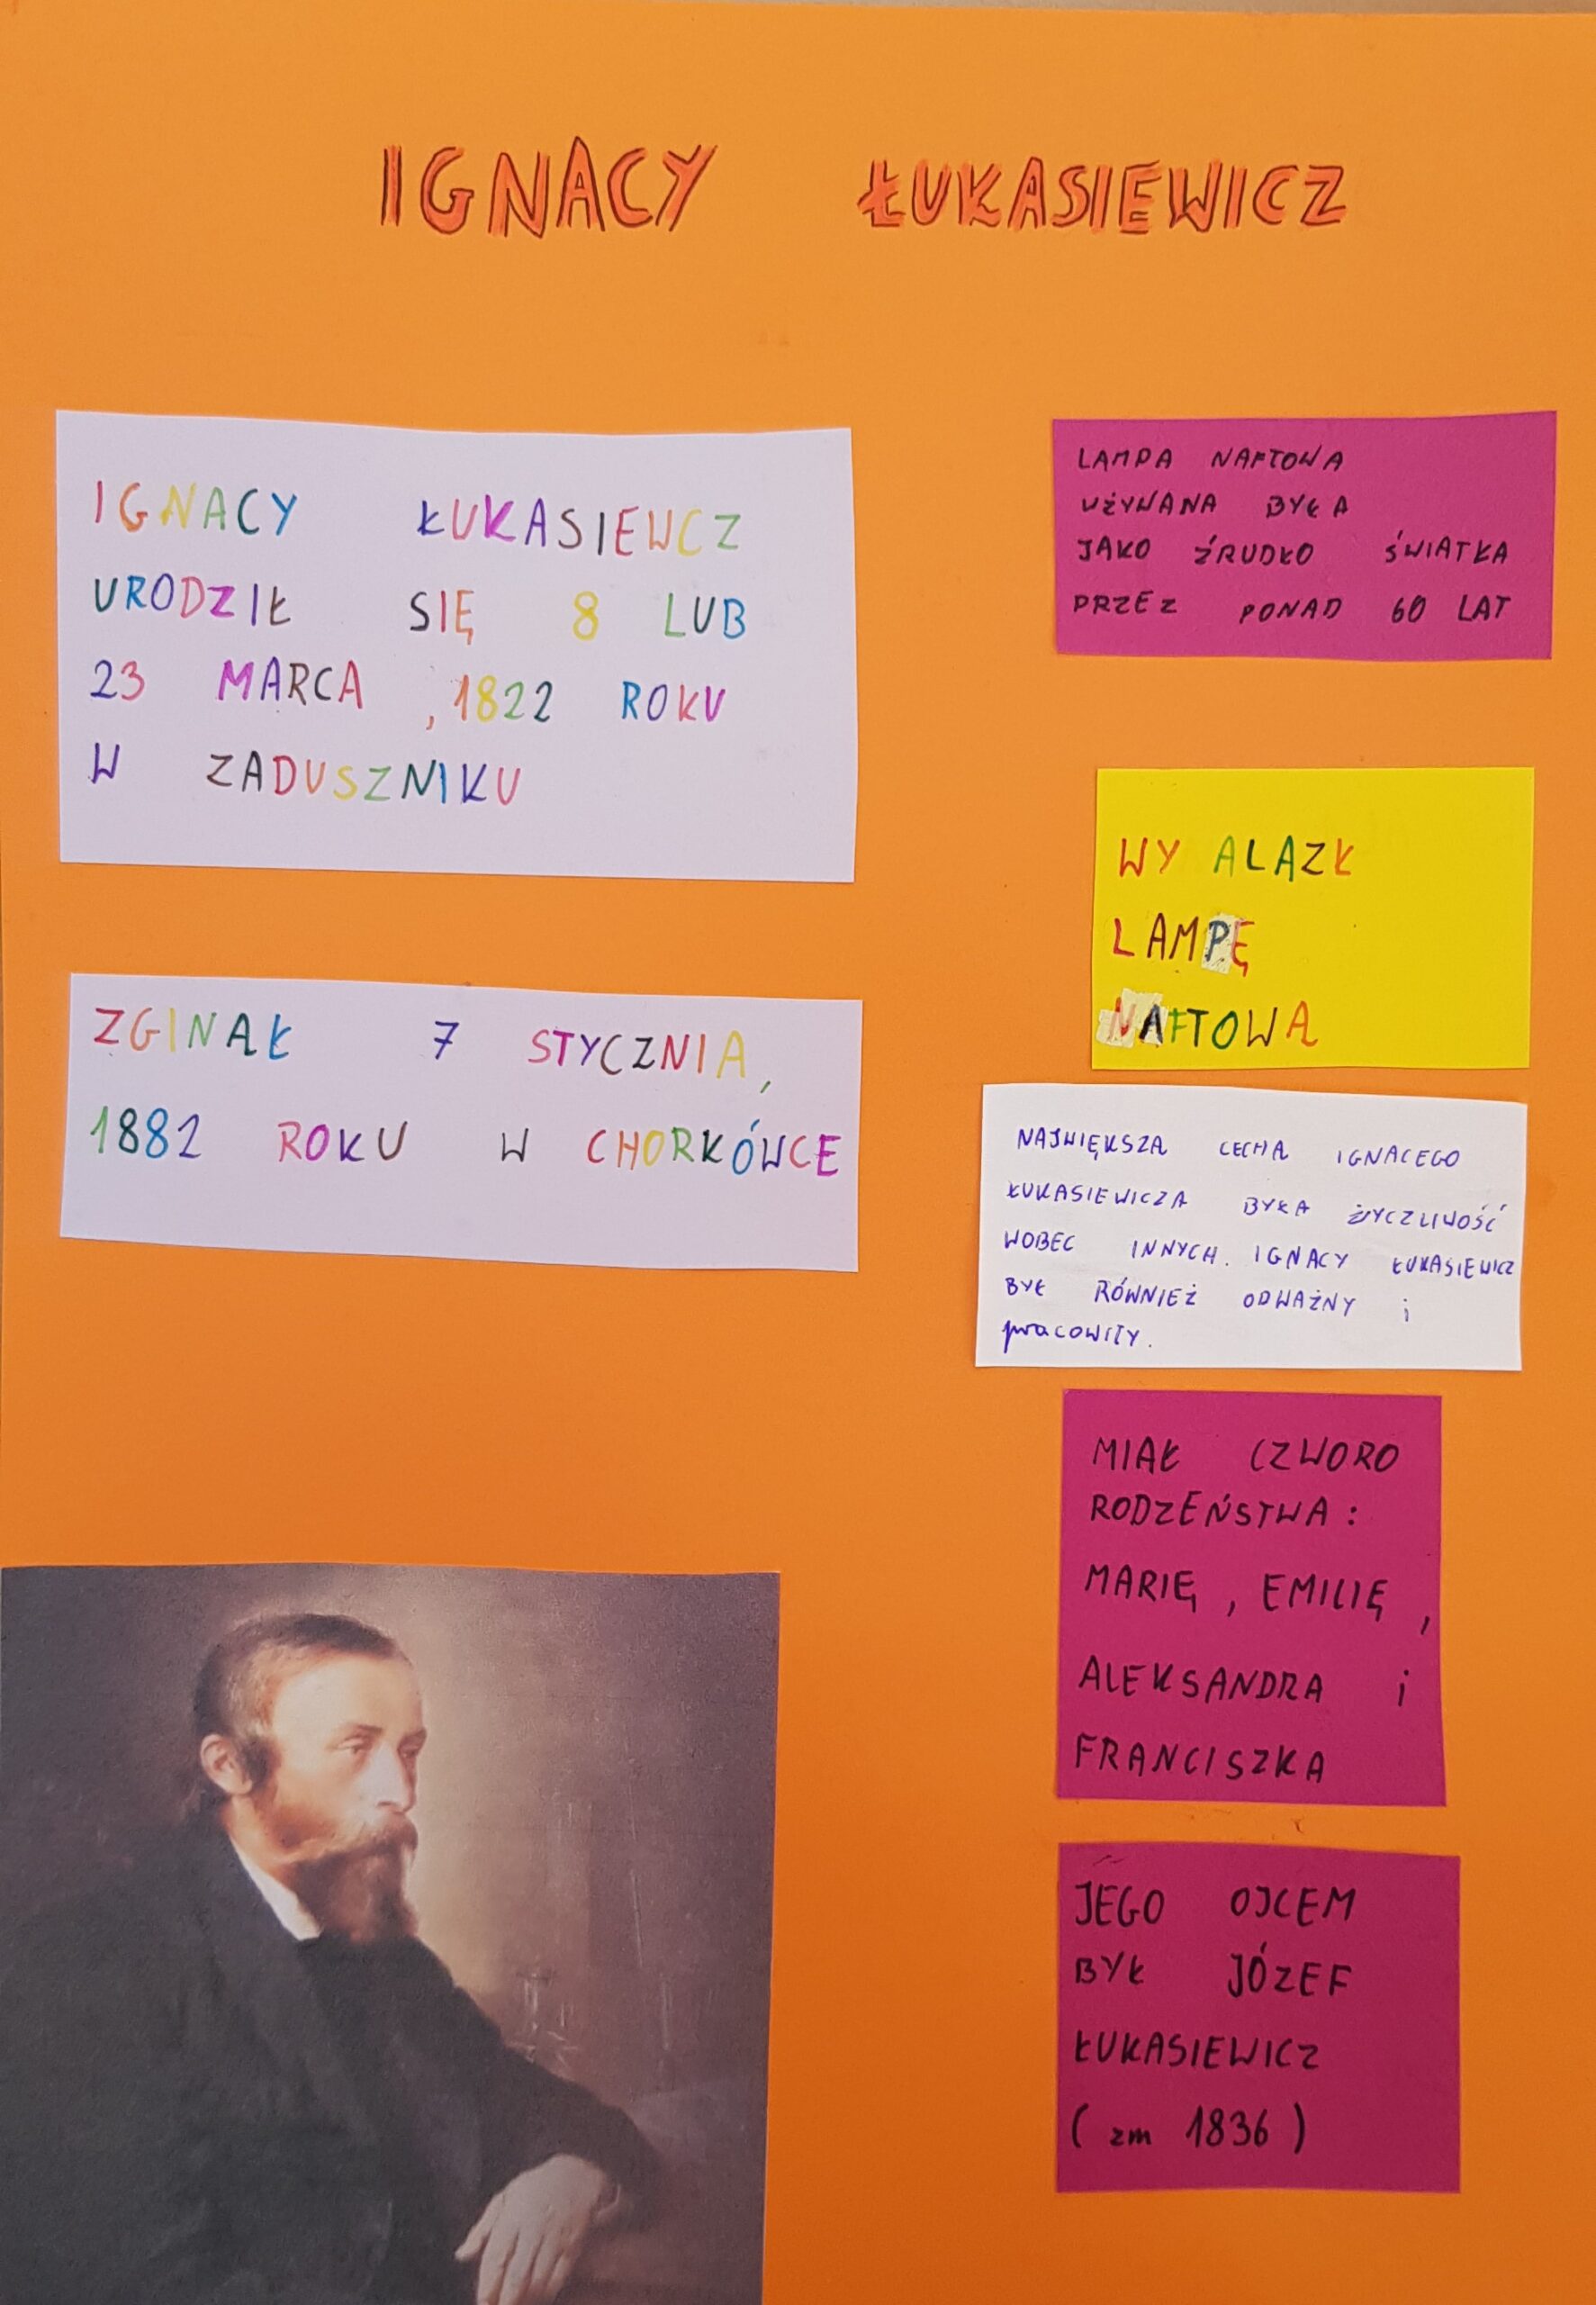 IGNACY ŁUKASIEWICZ
IGNACY ŁUKASIEWCZ
URODZIŁ SIĘ 8 LUB
23 MARCA , 1822 ROKU
W ZADUSZNIKU
ZGINĄŁ 7 STYCZNIA,
1882 ROKU W CHORKÓWCE
LAMPA NAFTOWA
UŻYWANA BYŁA
JAKO ŹRUDŁO ŚWIATŁA
PRZEZ PONAD 60 LAT
WY ALAZŁ
LAMPĘ
NAFTOWĄ
NAJWIĘKSZĄ CECHĄ IGNACEGO
ŁUKASIEWICZA BYŁA ŻYCZLIWOŚĆ
WOBEC INNYCH. IGNACY ŁUKASIEWICZ
BYŁ RÓWNIEŻ ODWAŻNY i
pracowITY.
MIAŁ CZWORO
RODZEŃSTWA:
MARIĘ, EMILIĘ,
ALEKSANDRA i
FRANCISZKA
JEGO OJCEM
BYŁ JÓZEF
ŁUKASIEWICZ
(zm 1836)